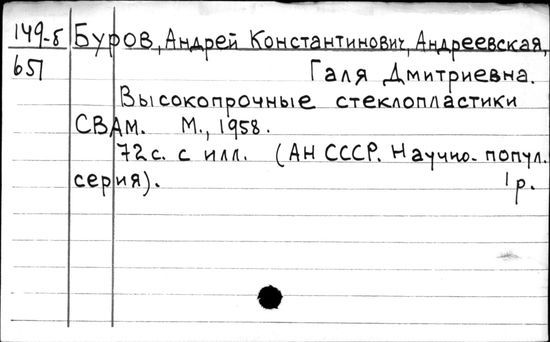 149-5 Буров, Андрей Константинович, Андреевская,
651 Галя Дмитриевна.
Высокопрочные стеклопластики
СВАМ. М., 1958.
72 с. с илл. (АН СССР. Научно-попул.
серия). 1 р.